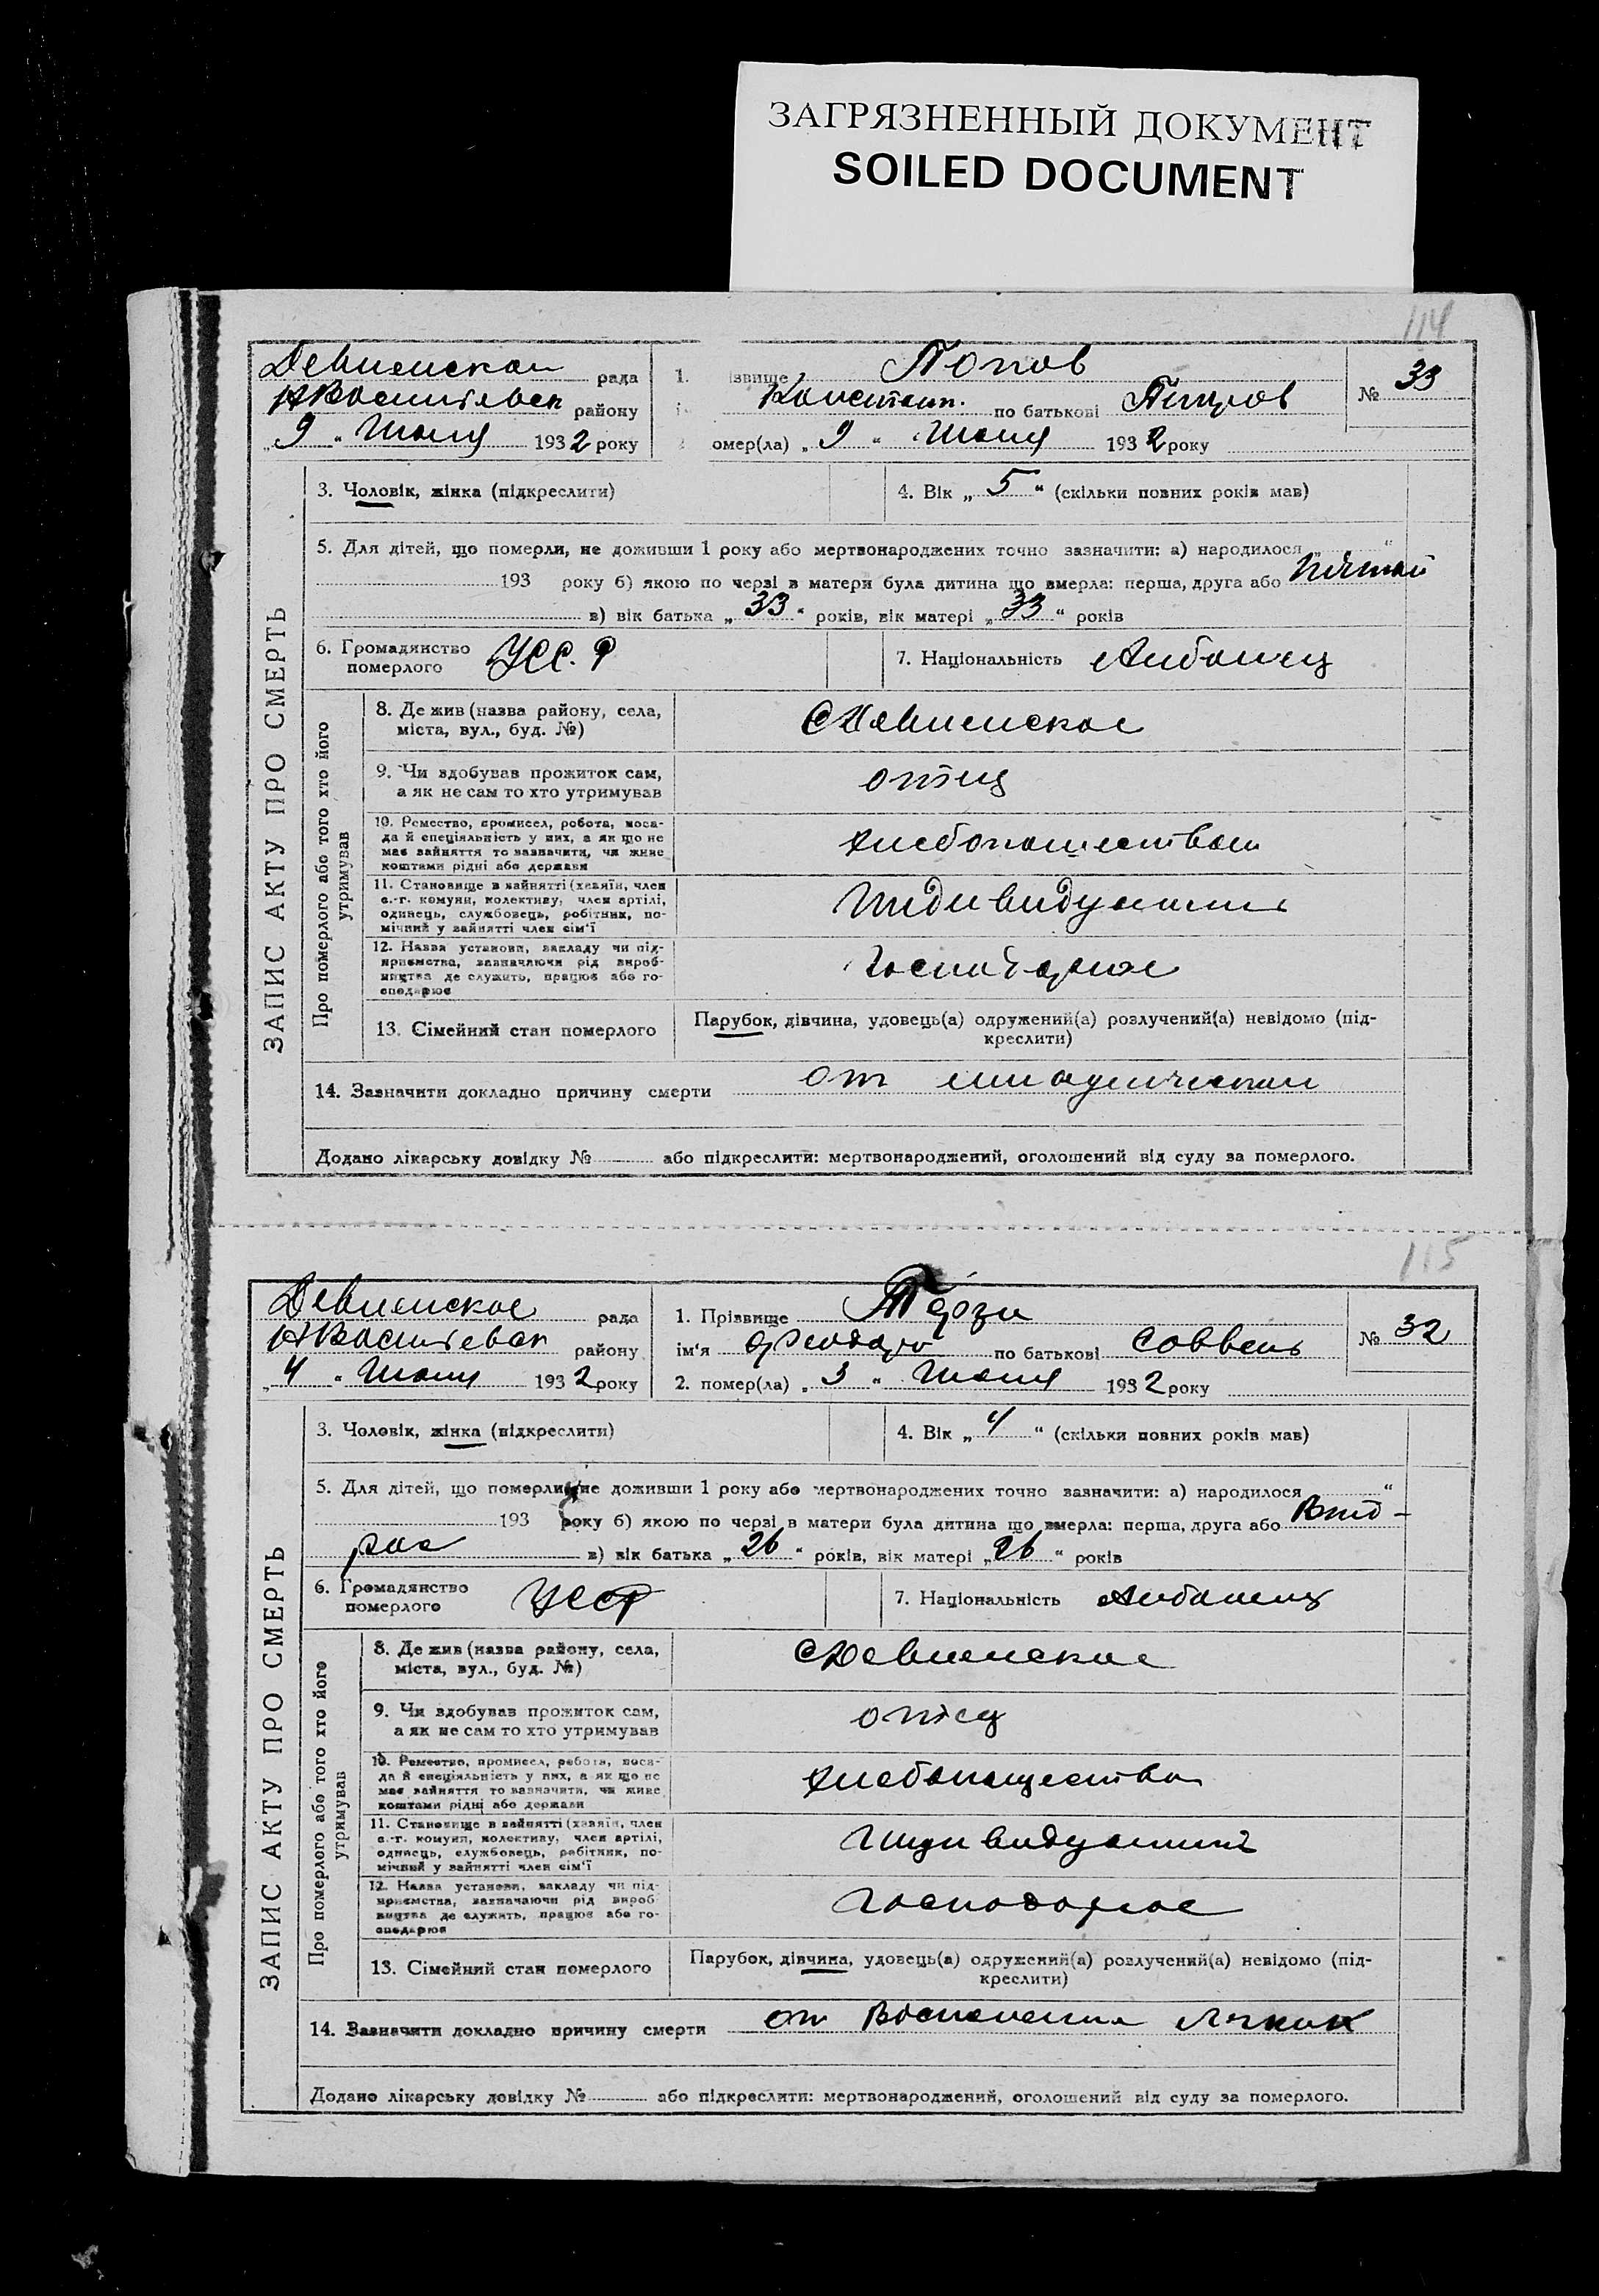 ЗАГРЯЗНЕННЫЙ ДОКУМЕНТ
SOILED DOCUMENT
114
ЗАПИС АКТУ ПРО СМЕРТЬ
Девненской рада
район у
„9“ Июля 1932 року
1. ізвище Попов
Констант. по батькові Петров
омер(ла) „9“ Июля 1932 року
№ 33
3. Чоловік, жінка (підкреслити)
4. Вік „5“ (скільки повних років мав)
5. Для дітей, що померли, не доживши 1 року або мертвонароджених точно зазначити: а) народилося „ “
193 року б) якою по черзі в матери була дитина що вмерла: перша, друга або пятой
в) вік батька „33“ років, вік матері „33“ років
6. Громадянство
померлого УСС.Р
7. Національність Албанец
Про померлого або того хто його
утримував
8. Де жив (назва району, села,
міста, вул., буд. №)
С Девненское
9. Чи здобував прожиток сам,
а як не сам то хто утримував
отец
10. Ремество, промисел, робота, поса-
да й спеціяльність у них, а як що не
має зайняття то зазначити, чи живе
коштами рідні або держави
хлебопашеством
11. Становище в зайнятті (хазяїн, член
с.-г. комуни, колективу, член артілі,
одинець, службовець, робітник, по-
мічний у зайнятті член сім'ї
12. Назва установи, закладу чи під-
приємства, зазначаючи рід вироб-
ництва де служить, працює або го-
сподарює
13. Сімейний стан померлого
Парубок, дівчина, удовець(а) одружений(а) розлучений(а) невідомо (під-
креслити)
14. Зазначити докладно причину смерти от младенческой
Додано лікарську довідку № або підкреслити: мертвонароджений, оголошений від суду за померлого.
115
ЗАПИС АКТУ ПРО СМЕРТЬ
Девненское рада
району
„4“ Июля 1932 року
1. Прізвище Терзи
ім'я по батькові
2. помер(ла) „3“ Июля 1932 року
№ 32
3. Чоловік, жінка (підкреслити)
4. Вік „4“ (скільки повних років мав)
5. Для дітей, що померли, не доживши 1 року або мертвонароджених точно зазначити: а) народилося “
193 року б) якою по черзі в матери була дитина що вмерла: перша, друга або Вто-
рая в) вік батька „26“ років, вік матері „26“ років
6. Громадянство
померлого УССР
7. Національність Албанец
Про померлого або того хто його
утримував
8. Де жив (назва району, села,
міста, вул., буд. №)
С Девненское
9. Чи здобував прожиток сам,
а як не сам то хто утримував
отец
10. Ремество, промисел, робота, поса-
да й спеціяльність у них, а як що не
має зайняття то зазначити, чи живе
коштами рідні або держави
11. Становище в зайнятті (хазяїн, член
с.-г. комуни, колективу, член артілі,
одинець, службовець, робітник, по-
мічний у зайнятті член сім'ї
12. Назва установи, закладу чи під-
приємства, зазначаючи рід вироб-
ництва де служить, працює або го-
сподарює
13. Сімейний стан померлого
Парубок, дівчина, удовець(а) одружений(а) розлучений(а) невідомо (під-
креслити)
14. Зазначити докладно причину смерти от
Додано лікарську довідку № або підкреслити: мертвонароджений, оголошений від суду за померлого.